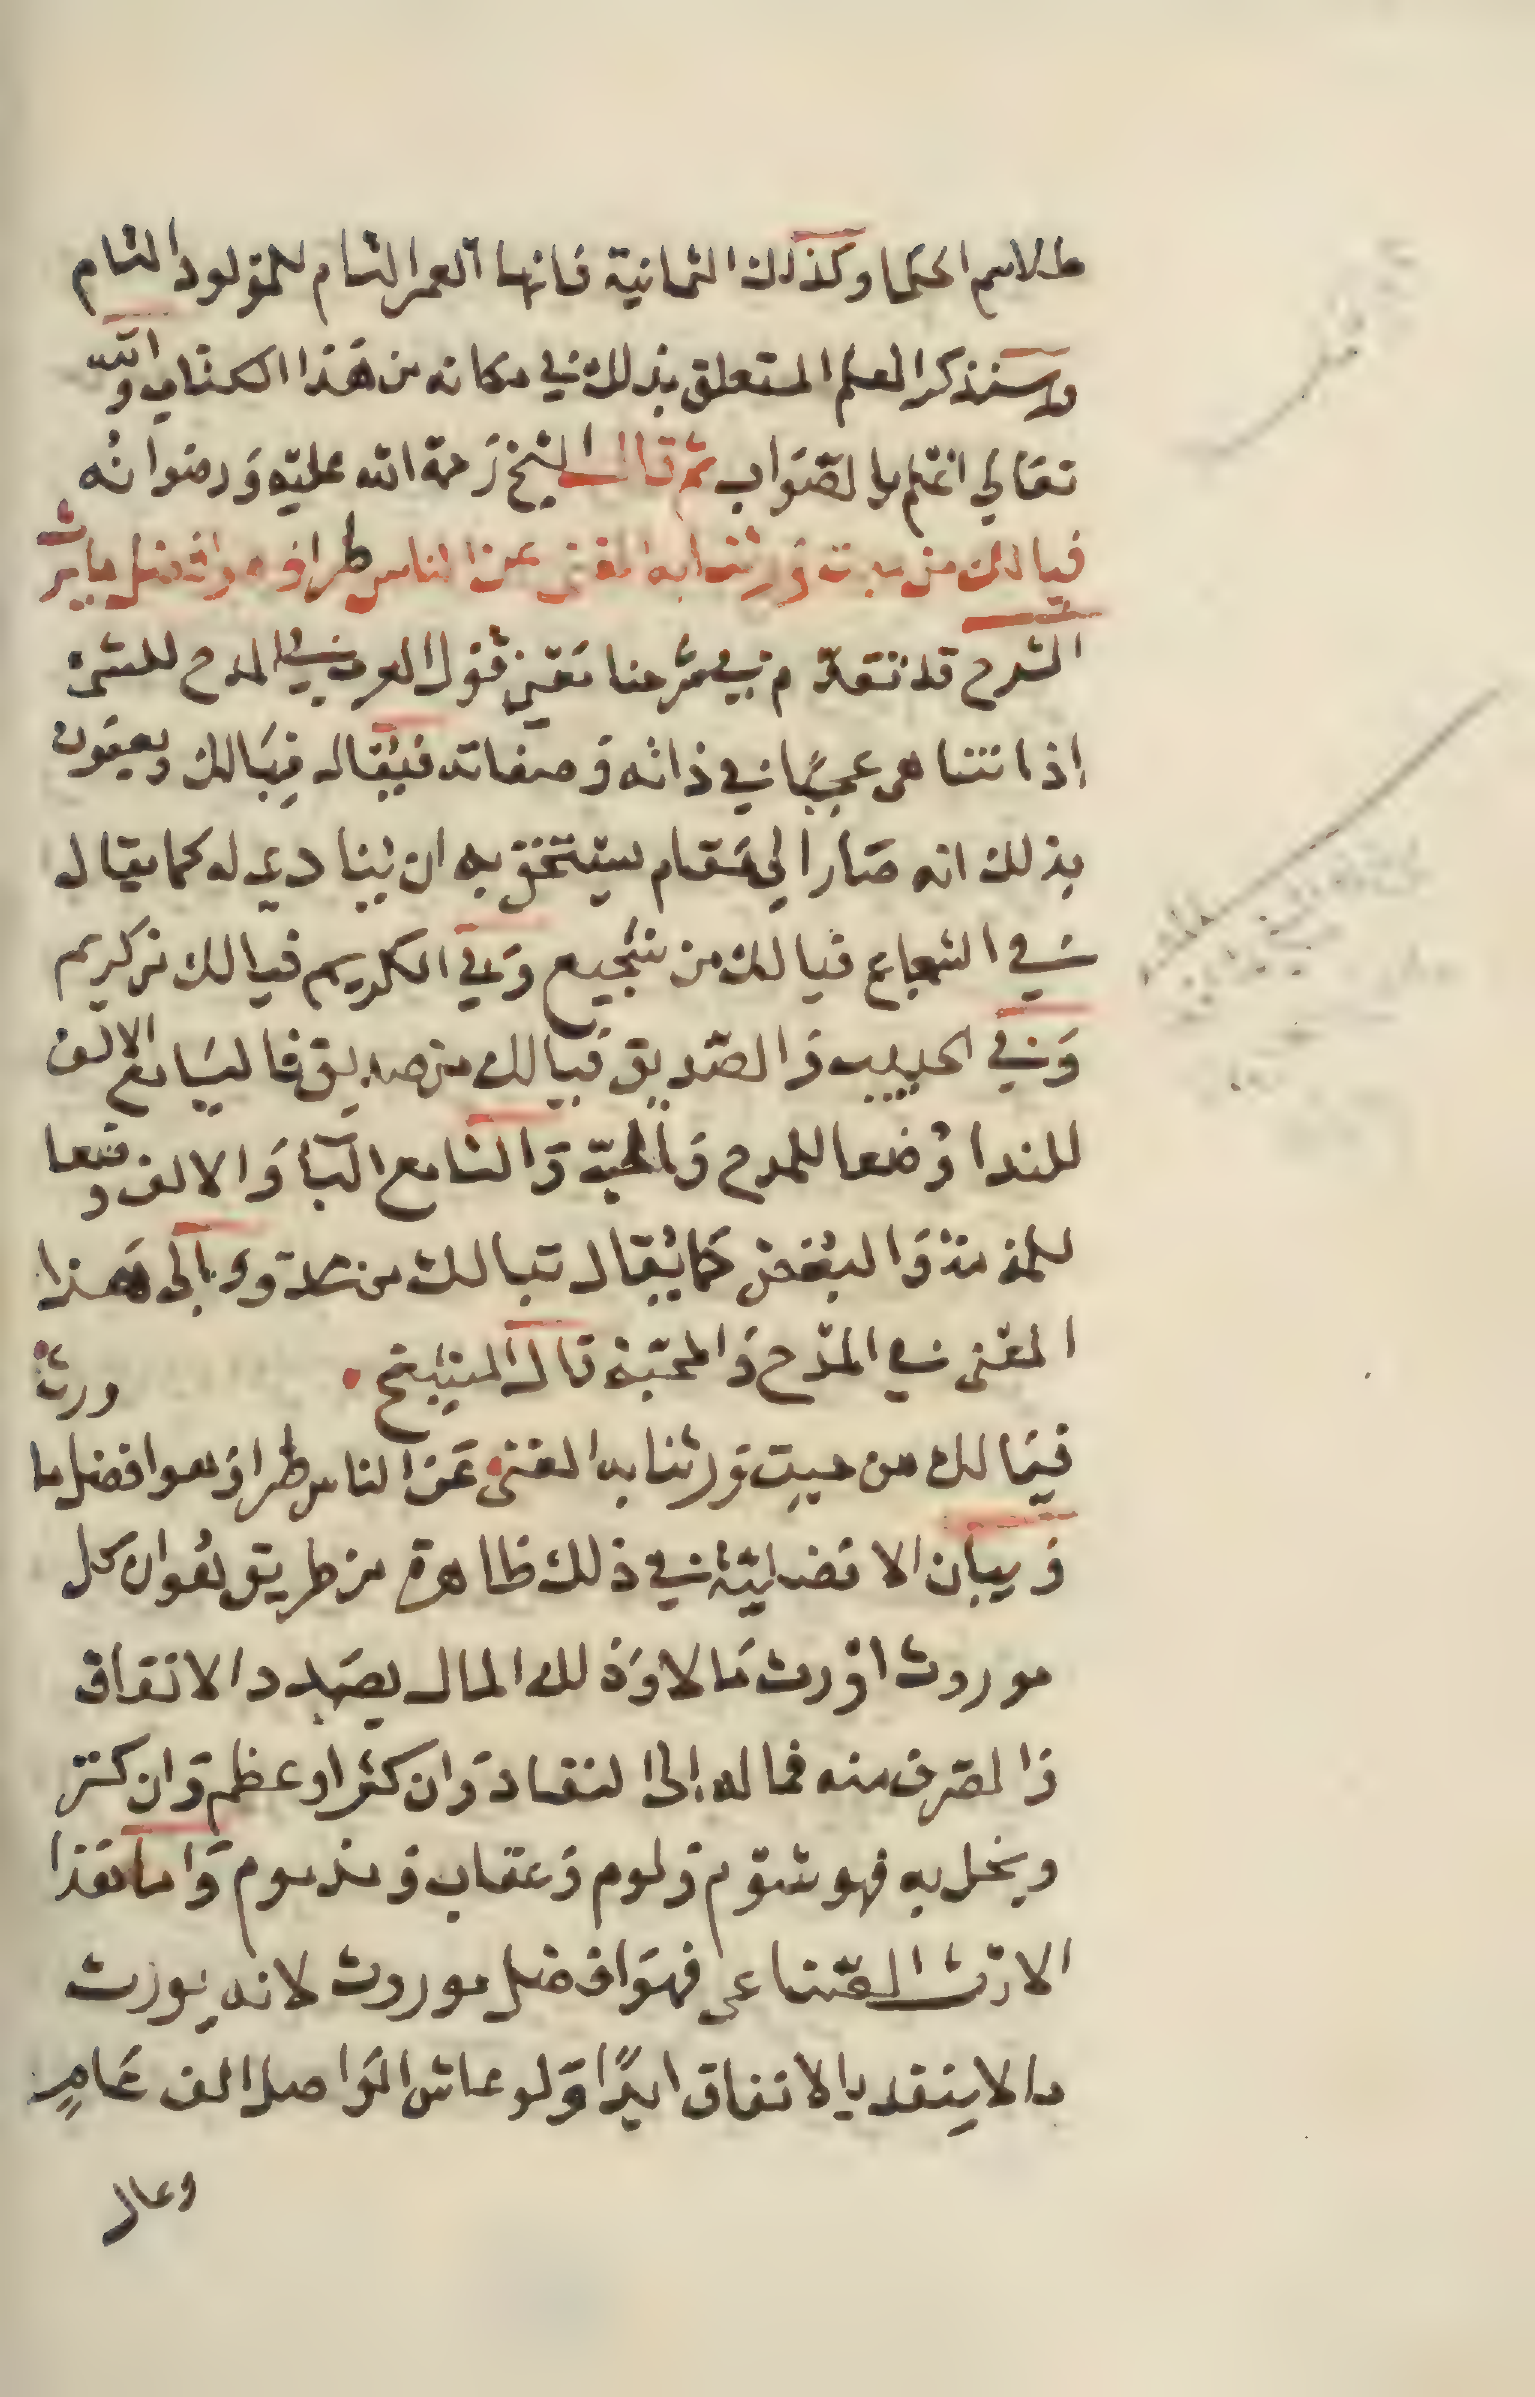 طلاسم الحكما وكذلك الثمانية فانها العمر التام للمولود التام
وسنذكر العلم المتعلق بذلك في مكانه من هذا الكتاب والله
تعالي اعلم بالصواب ثم قال الشيخ رحمة الله عليه ورضوانه
فيا لك من ميت ورثنا به الغنى عن الناس طرا وهو افضل مايرث
الشرح قد تقدم في شرحنا معنى قول العرب في المدح للشئ
اذا تناهى عجبًا في ذاته وصفاته فيُقال فيا لك ويعنون
بذلك انه صار الي مقام يستحق به ان ينادي له كما يقال
في الشجاع فيا لك من شجيع وفي الكريم فيا لك من كريم
وفي الحبيب والصديق فيا لك من صديق فاليا مع الالف
للندا وُضعا للمدح والمحبّة والتا مع الباء والالف وضعا
للمذمة والبغض كما يُقال تبا لك من عدو والى هذا
المعنى في المدح والمحبّة قال الشيخ
فيا لك من ميتٍ ورثنا به الغنى عن الناس طرا وهو افضل ما ورث
وبيان الافضليّة في ذلك ظاهرة من طريق هو ان كل
موروث اورث مالا وذلك المال بصدد الانفاق
والصرف منه فماله الى النفاد وان كثر او عظم وان كنز
وبخل به فهو شوم ولوم وعقاب ومذموم واما هذا
الارث الصناعي فهو افضل موروث لانه يورث
مالا ينفد بالانفاق ابدًا ولو عاش الواصل الف عامٍ
وعال